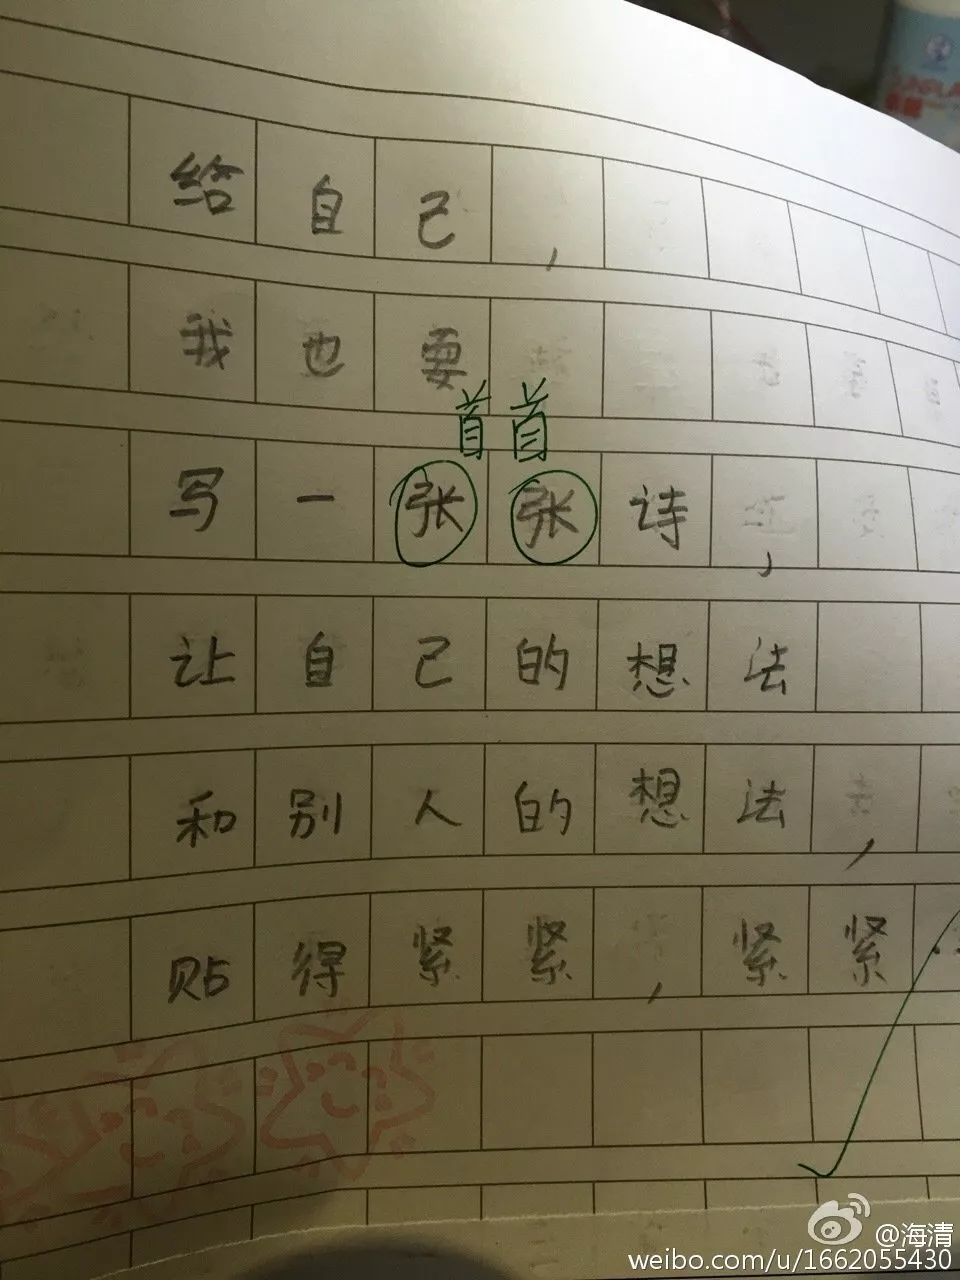 给自己，
我也要
首首
写一张张诗，
让自己的想法
和别人的想法，
贴得紧紧，紧紧
@海清
weibo.com/u/1662055430